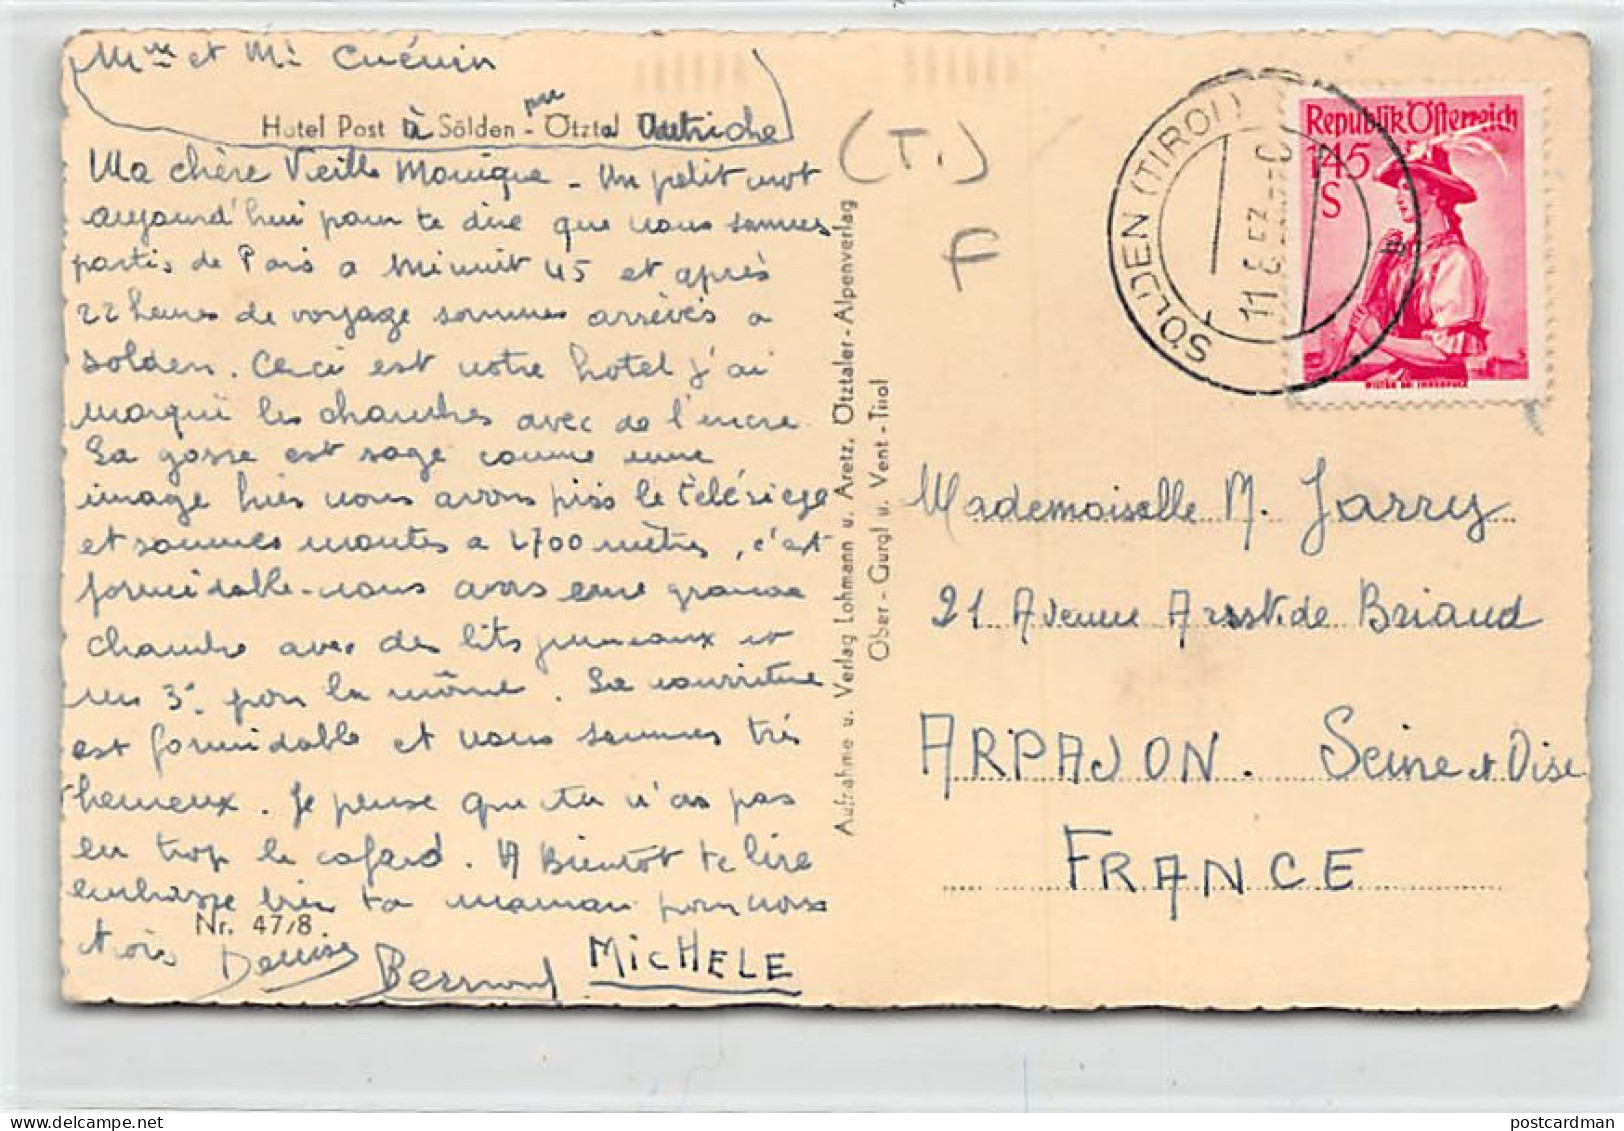 Mme et Mr Cuénin
Hotel Post à Sölden - par Ötztal Autriche
Ma chère Vieille Monique - Un petit mot
aujourd'hui pour te dire que nous sommes
partis de Paris a Minuit 45 et après
22 heures de voyage sommes arrèvés a
solden. Ceci est notre hotel j'ai
marqué les chambres avec de l'encre
La gosse est sage comme une
image hier nous avons pris le télésiege
et sommes montés a 2700 mètres, c'est
formidable - nous avons une grande
chambre avec des lits jumeaux et
un 3e pour la môme. La nourriture
est formidable et nous sommes très
heureux. Je pense que tu n'as pas
en trop le cafard. A Bientôt te lire
embrasse bien ta maman pour nous
Nr. 47/8
trois Denise Bernard MICHELE
Aufnahme u. Verlag Lohmann u. Aretz, Ötztaler-Alpenverlag
Ober-Gurgl u. Vent-Tirol
(T.)
F
SÖLDEN (TIROL)
11.8.53
Republik Österreich
1'45
S
WILTEN BEI INNSBRUCK
Mademoiselle M. Jarry
21 Avenue Aristide Briand
ARPAJON. Seine et Oise
FRANCE
postcardman